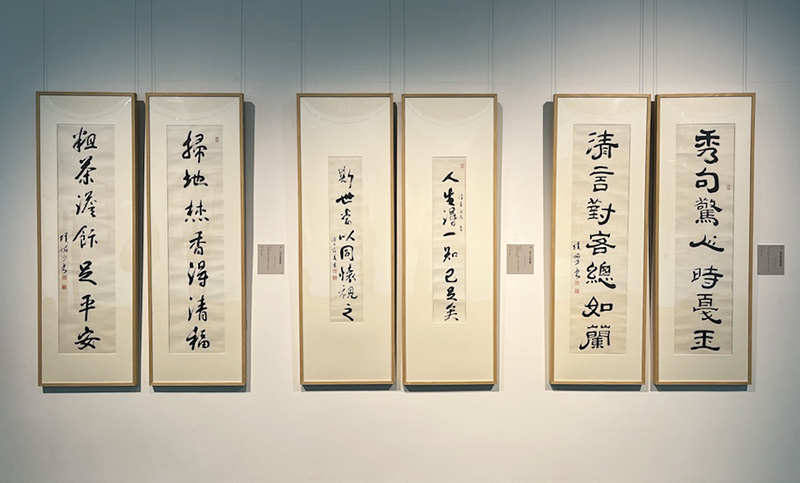 秀句驚心時戛玉
清言對客總如蘭
人生得一知己足矣
斯世當以同懷視之
掃地焚香得清福
粗茶淡飯足平安